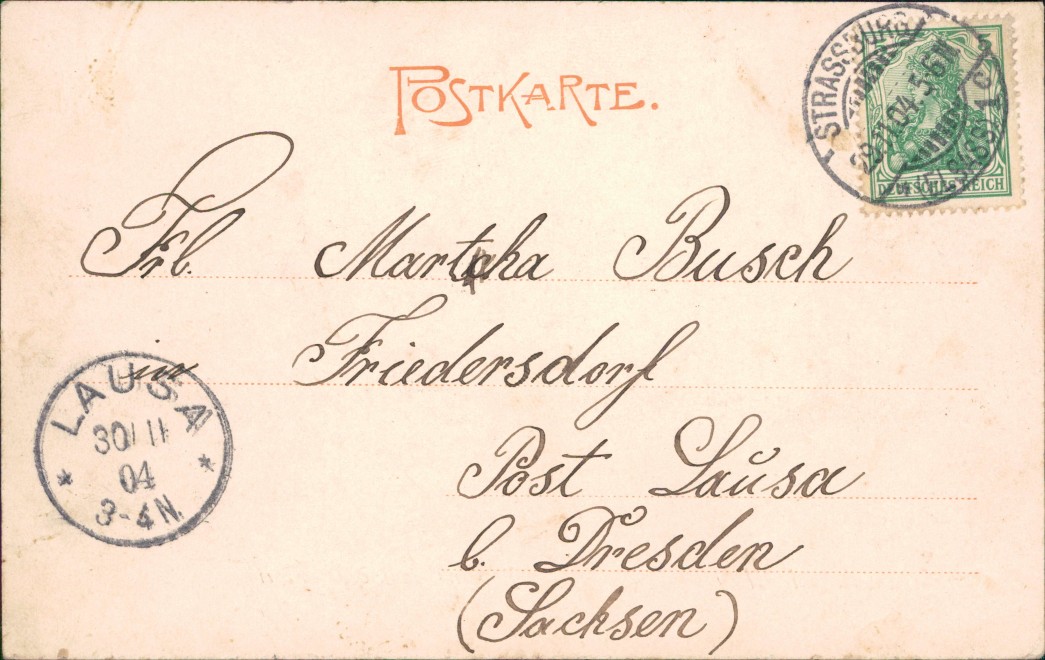 POSTKARTE.
STRASSBURG
5-6N
5
DEUTSCHES REICH
Frl. Martcha Busch
in Friedersdorf
Post Lausa
b. Dresden
(Sachsen)
LAUSA
30/11
04
3-4N.